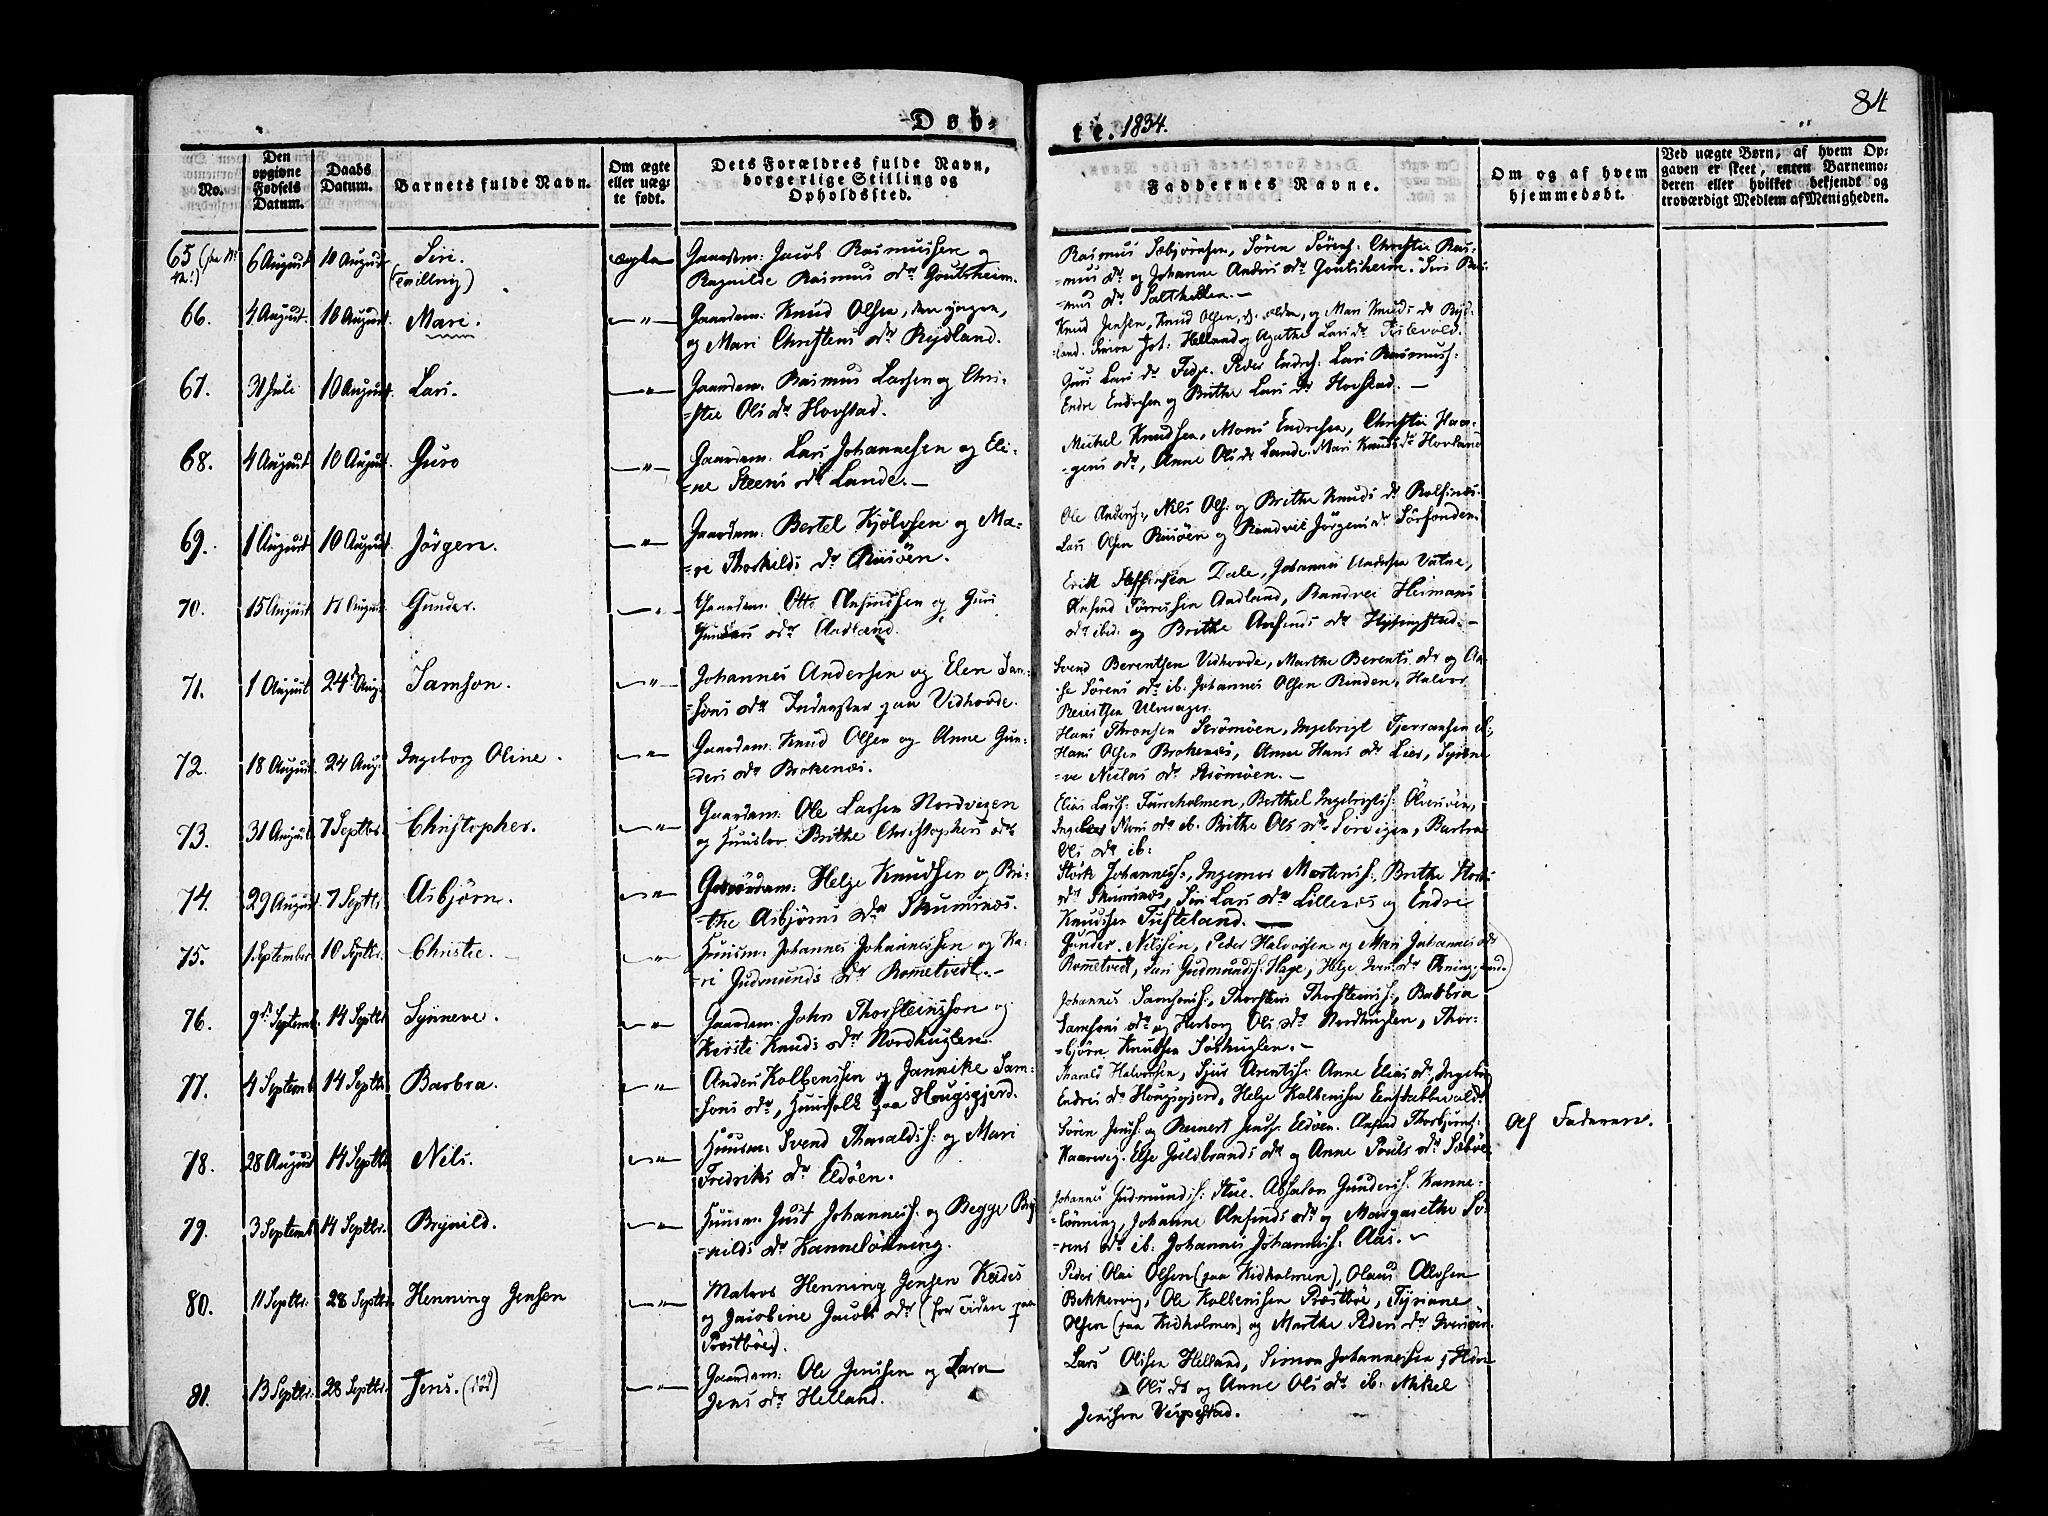 84
Døb-
te. 1834.
No.
Den opgivne Fødsels Datum.
Daabs Datum.
Barnets fulde Navn.
Om ægte eller uægte født.
Dets Forældres fulde Navn, borgerlige Stilling og Opholdssted.
Faddernes Navne.
Om og af hvem hjemmedøbt.
Ved uægte Børn, af hvem Opgaven er skeet, enten Barnemoderen eller hvilket bekjendt og troværdigt Medlem af Menigheden.
65 6 August 10 August Siri. (Tvilling) ægte Gaardm: Jacob Rasmussen og
Ragnilde Rasmus dr Goutsheim.
Rasmus Sæbjörnsen, Sören Sörens: Christie Ras-
mus dr og Johanne Anders dr Goutsheim. Siri Ras-
=mus dr
66. 4 August 10 August Mari. –"– Gaardm: Knud Olsen, den yngre,
og Mari Christens dr Rydland.
Knud Jensen, Knud Olsen, d. eldre, og Mari Knuds dr Ryd-
land. Simon Joh: Helland og Agathe Lars dr
67. 31 Juli 10 August. Lars. –"– Gaardm: Rasmus Larsen og Chri-
=stie Ols dr Hovstad.
Guri Lars dr Fedje. Peder Endres: Lars Rasmuss:
Endre Endresen og Brithe Lars dr Hovstad. –
68. 4 August 10 August Guro –"– Gaardm: Lars Johannesen og Eli-
=ne Steens dr Lande. –
Mikel Knudsen, Mons Endresen, Christie Haa-
=gens dr, Anne Ols dr Lande. Mari Knuds dr Hovland
69. 1 August 10 August Jörgen. –"– Gaardm: Bertel Kjölvsen og Ma-
=ri Thorkilds dr Risöen.
Ole Anders:, Nils Ols: og Brithe Knuds dr Rolfsnæs.
Lars Olsen Risöen og Randvei Jörgens dr Sörfonden.
70. 15 August 17 August Gunder. –"– Gaardm: Otto Ansindsen og Guri
Gunders dr Aadland.
Erik Steffensen Dale, Johannes Andersen Vatne,
Ansind Törresen Aadland, Randvei Heimans
dr ibid: og Brithe Ansinds dr Hysingstad. –
71. 1 August 24d Aug. Samson. –"– Johannes Andersen og Elen Sam-
=sons dr Inderster paa Vidhovde.
Svend Berentsen Vidhovde, Marthe Berents dr og An-
=ne Sörens dr ib. Johannes Olsen Rinden, Halvor
Reiersen Ulversager.
72. 18 August. 24 Aug: Ingeborg Oline. –"– Gaardm: Knud Olsen og Anne Gun-
=ders dr Brokenæs.
Hans Thronsen Strömöen, Ingebrigt
Hans Olsen Brokenæs, Anne Hans dr Lier, Synne-
=ve Nielas dr Strömöen. –
73. 31 August 7 Septbr. Christopher. –"– Gaardm: Ole Larsen Nordvigen
og Huustro Brithe Christophers dr
Elias Lars: Fureholmen, Berthel Ingebrigts:
Mons dr ib. Brithe Ols dr Sörvigen, Barbra
Ols dr ib:
74. 29 August 7 Septbr. Asbjörn. –"– Gaardm: Helge Knudsen og Bri-
=the Asbjörns dr Skumsnæs.
Störk Johanness:, Ingemar Mortens:, Brithe Störks
dr Skumsnæs, Siri Lars dr Lillenæs og Endre
Knudssen Tufteland. –
75. 1 September 10 Septbr. Christie. – –"– Huusm: Johannes Johannessen og Ka-
=ri Gudmunds dr Rometvedt. –
Gunder Nilssen, Peder Halvorsen og Mari Johannes dr
Rometvedt, Lars Gudmunds: Hage, Helge Iver dr
76. 9d Septemb. 14 Septbr. Synneve. –"– Gaardm: John Thorsteinsson og
Kirsti Knuds dr Nordhuglen.
Johannes Samsons:, Thorstein Thorsteins:, Barbra
Samsons dr og Herborg Ols dr Nordhuglen, Thor-
=björn Knutsen Sörhuglen. –
77. 4 Septemb. 14 Septbr. Barbra. –"– Anders Kolbenssen og Jannike Sam-
=sons dr, Huusfolk paa Hougsgjerd.
Tharald Halvorsen, Sjur Arents: Anne Elias dr, Ingeborg
Endres dr Hougsgjerd, Helge Kolbenssen Eenstabbevold.
78. 28 August 14 Septbr. Nils. –"– Huusm: Svend Tharalds: og Mari
Fredriks dr Eldöen.
Sören Jens: og Reinert Jens: Eldöen. Ansind Thorbjörns:
Kaarevig. Elje Guldbrands dr og Anne Pouls dr Sæböe
Af Faderen.
79. 3 Septemb. 14 Septbr. Brynild. –"– Huusm: Just Johanness: og Begge Bry-
=nilds dr Kannelönning.
Johannes Gudmunds: Stue. Absalon Gunders: Kanne-
=lönning, Johanne Ansinds dr og Margarethe Sö-
=rens dr ib: Johannes Johannes: Aas. –
80. 11 Septbr. 28 Septbr. Henning Jensen –"– Matros Henning Jensen
og Jacobine Jacobs dr (for Tiden paa
Præstböe).
Peder Olai Olsen (paa Kidholmen), Olaus Olevsen
Bekkervig, Ole Kolbenssen Præstböe,
Olsen (paa Kidholmen) og Marthe Peders dr
81. 13 Septbr. 28 Septbr. Jens. (död) –"– Gaardm: Ole Jenssen og Kara
Jens dr Helland.
Lars Olssen Helland, Simon Johannessen,
Ols dr og Anne Ols dr ib. Mikel
Jenssen Vespestad.